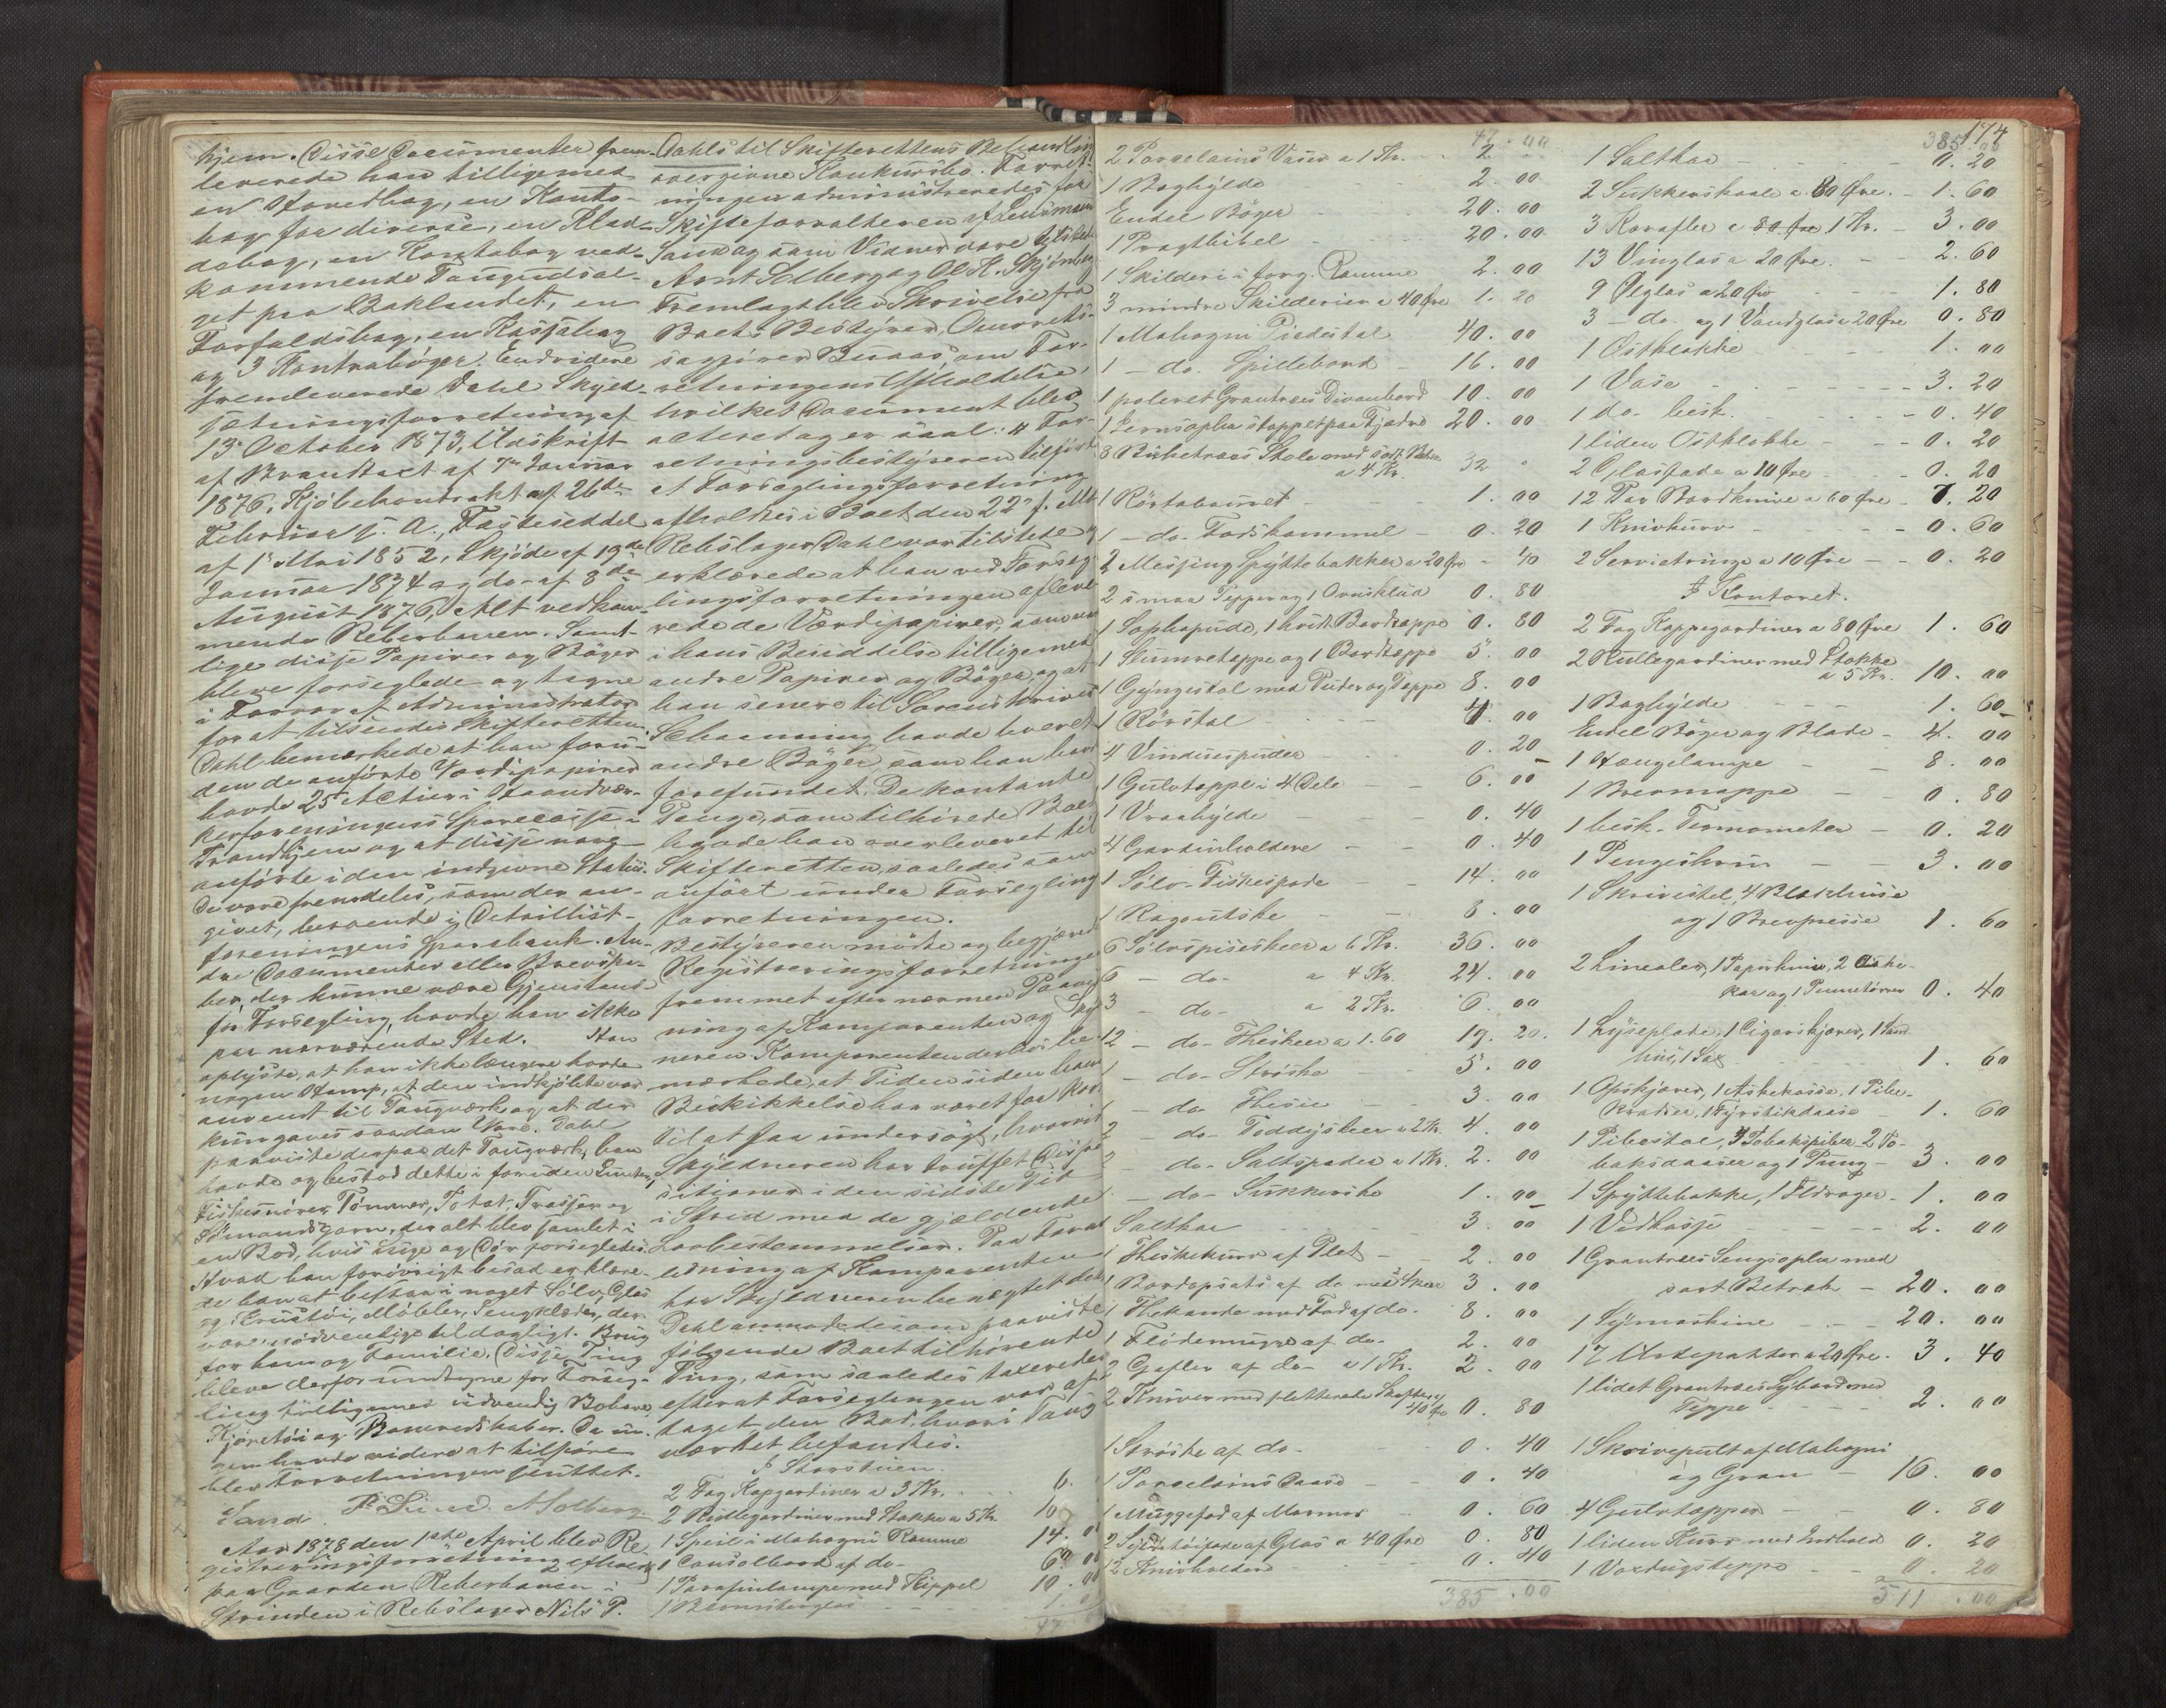 hjem. Disse Documenter frem-
leverede han tilligemed
en Hovedbog, en Konto-
bog for diverse, en Klad-
debog, en Kontobog ved-
kommende Tougudsal-
get paa Baklandet, en
Forfaldsbog, en Kassabog
og 3 Kontrabøger. Endvidere
fremleverede Dahl Skyld-
sætningsforretning af
13 October 1873, Udskrift
af Brandtaxt af 7de Januar
1876, Kjøbekontrakt af 26de
Februar s. A., Fæsteseddel
af 1 Mai 1852, Skjøde af 19de
Januar 1834 og do. af 8de
August 1876, Alt vedkom-
mende Reberbanen. Samt-
lige disse Papirer og Bøger
bleve forseglede og tagne
i Forvar af Administrator
for at tilsendes Skifteretten.
Dahl bemærkede at han foru-
den de anførte Værdipapirer
havde 25 Actier i Haandvær-
kerforeningens Sparecasse i
Trondhjem og at disse var
anførte i den indgivne Status.
De vare fremdeles, som der an-
givet, beroende i Detaillist-
foreningens Sparebank. An-
dre Documenter eller Brevska-
ber, der kunne være Gjenstand
for Forsegling, havde han ikke
paa nærværende Sted. Han
oplyste, at han ikke længere havde
nogen Hamp, at den indkjøbte var
anvendt til Tougværk og at der
kun gaves saadan Vare. Dahl
paaviste derpaa det Tougværk, han
havde og bestod dette i foruden
Fiskesnører, Tømmer, Totat, Trosser og
Sømandsgarn, der alt blev samlet i
en Bod, hvis Luge og Dør forsegledes.
Hvad han forøvrigt besad erklære-
de han at bestaa i noget Sølv, Glas
og Crustøi, Møbler, Sengklæder, der
vare nødvendige til dagligt Brug
for ham og Familie. Disse Ting
bleve derfor undtagne for Forseg-
ling tilligemed udvendig Bohave,
Kjøretøi og Baaredskaber. Da in-
gen havde videre at tilføre
blev Forretningen sluttet.
Sand. P. Lund. A Solberg
Aar 1878 den 1ste April blev Re-
gistreringsforretning afholdt
paa Gaarden Reberbanen i
Strinden i Rebslager Nils P.
Dahls til Skifterettens Behandling
overgivne Konkursbo. Forret-
ningen administreredes for
Skifteforvalteren af Lensmann
Sand og som Vidner vare tilstede
Arnt Solberg og Ole K. Skjønberg
Fremlagt blev Skrivelse fra
Boets Bestyrer, Overrets-
sagfører Buaas, om For-
retningens Afholdelse,
hvilket Document blev
acteret og er saal: "For-
retningsbestyreren tilførte
at Forseglingsforretning
afholdtes i Boet den 22de f. Mt.
Rebslager Dahl var tilstede og
erklærede at han ved Forseg-
lingsforretningen afleve-
rede de Værdipapirer, som var
i hans Besiddelse tilligemed
andre Papirer og Bøger, og at
han senere til Sorenskriver
Schanning havde leveret
andre Bøger, som han havde
forefundet. De kontante
Penge, som tilhørede Boet
havde han overleveret til
Skifteretten, saaledes som
anført under Forsegling
forretningen.
Bestyreren mødte og begjærede
Registreringsforretningen
fremmet efter nærmere Paavis-
ning af Komparenten og Skyld-
neren. Komparenten derhos be-
mærkede, at Tiden siden hans
Beskikkelse har været for kort
til at faa undersøgt, hvorvidt
Skyldneren har truffet Dispo-
sitioner i den sidste Tid
i Strid med de gjældende
Lovbestemmelser. Paa Foran-
ledning af Komparenten
har Skyldneren benægtet dette
Dahl anmodedes om at paavise
følgende Boet tilhørende
Ting, som saaledes taxeredes
efterat Forseglingen var af-
taget den Bod, hvori Toug-
værket befandtes.
I Storstuen.
2 Fag Kapgardiner a 3 Kr. 6.
2 Rullegardiner med Stokke a 5 Kr 10
1 Speil i Mahogni Ramme 14. 00
1 Consolbord af do- 6. 00
1 Parafinlampe med Kuppel 10. 00
1 Blomsterglas 1. 0
47
47. 00
2 Porcelains Vaser a 1 Kr. 2. -
1 Boghylde 2. 00
Endel Bøger 20. 00
1 Pragtbibel 20. 00
1 Skilderi i forg. Ramme 2. 00
3 mindre Skilderier a 40 Øre 1. 20
1 Mahogni Piedestal 40. 00
1 - do- Spillebord 16. 00
1 poleret Grantræes Divanbord 10. 00
1 Jernsopha stoppet paa Fjædre 20. 00
8 Birketræes Stole med sort Betræk
a 4 Kr. 32 "
1 Rørtabouret 1. 00
1 - do- Fodskammel 0. 20
2 Messing Spyttebakker a 20 Øre - 40
2 smaa Tepper og 1 Ovnsklud 0. 80
1 Sophapude, 1 hvidt Bordteppe 0. 80
1 Kummeteppe og 1 Bordteppe 5. 00
1 Gyngestol med Puder og Teppe 8. 00
1 Rørstol 4. 00
4 Vinduespuder 0. 20
1 Gulvteppe i 4 Dele 6. 00
1 Vraahylde 0. 40
4 Gardinholdere 0. 40
1 Sølv- Fiskespade 14. 00
1 Ragoutske 8. 00
6 Sølvspiseskeer a 6 Kr. 36. 00
6 - do- a 4 Kr. 24. 00
3 - do- a 2 Kr. 6. 00
12 - do- Theskeer a 1.60 19. 20.
1 - do- Strøske 5. 00
1 - do Thesie 3. 00
2 - do- Toddyskeer a 2 Kr. 4. 00
2 do- Saltspader a 1 Kr. 2. 00
1 - do- Sukkerske 1. 00
Saltkar 3. 00
1 Theskekurv af Plet 2. 00
1 Bordopsats af do med 4 kar 3. 00
1 Thekande med Fod af do. 8. 00
1 Flødemugge af do- 2. 00
2 Gafler af do- a 1 Kr. 2. 00
2 Kniver med pletterede Skafter a
40 Øre 0. 80
1 Strøske af do- 0. 40
1 Porcelains Daase 0. 40
1 Muggefad af Marmor 0. 60
2 Syltetøifade af Glas a 40 Øre 0. 80
12 Knivholdere 0. 40
385. 00
174
385.00
1 Saltkar 0. 20
2 Sukkerskaale a 80 Øre. 1. 60
3 Karafler a 80 Øre 1 Kr. 3. 00
13 Vinglas a 20 Øre. 2. 60
9 Ølglas a 20 Øre 1. 80
3 - do- og 1 Vandglas a 20 Øre 0. 80
1 Ostklokke 1. 00
1 Vase 3. 20
1 do- besk. 0. 40
1 liden Ostklokke 0. 20
2 Glasfade a 10 Øre 0. 20
12 Par Bordknive a 60 Øre 7. 20
1 Knivkurv 0. 60
2 Servietringe a 10 Øre 0. 20
I Kontoret.
2 Fag Kappegardiner a 80 Øre 1. 60
2 Rullegardiner med Stokke
a 5 Kr. 10. 00
1 Boghylde 1. 60
Endel Bøger og Blade 4. 00
1 Hængelampe 8. 00
1 Brevmappe 0. 80
1 besk. Termometer 0. 20
1 Pengeskrin 3. 00
1 Skrivestel, 4 Blækhuse
og 1 Brevpresse 1. 60
2 Linealer, 1 Papirkniv, 2 Aske-
kar og 1 Pennetørrer 0. 40
1 Lyseplade, 1 Cigarskjærer, 1 Sand
hus, 1 Sax 1. 60
1 Opskjærer, 1 Askekasse, 1 Pibe-
kradser, 1 Fyrstikdaase 1. 60
1 Pibestol, 4 Tobakspiber 2 To-
baksdaaser og 1 Pung 3. 00
1 Spyttebakke, 1 Ildrager 1. 00
1 Vedkasse 2. 00
1 Grantræes Sengsopha med
sort Betræk 20. 00
1 Symaskine 20. 00
17 Urtepotter a 20 Øre. 3. 40
1 lidet Grantræes Sybord med
Teppe 2. 00
1 Skrivepult af Mahogni
og Gran 16. 00
4 Gulvtepper 0. 80
1 liden Kurv med Indhold 0. 20
1 Voxdugsteppe 0. 20
511. 00